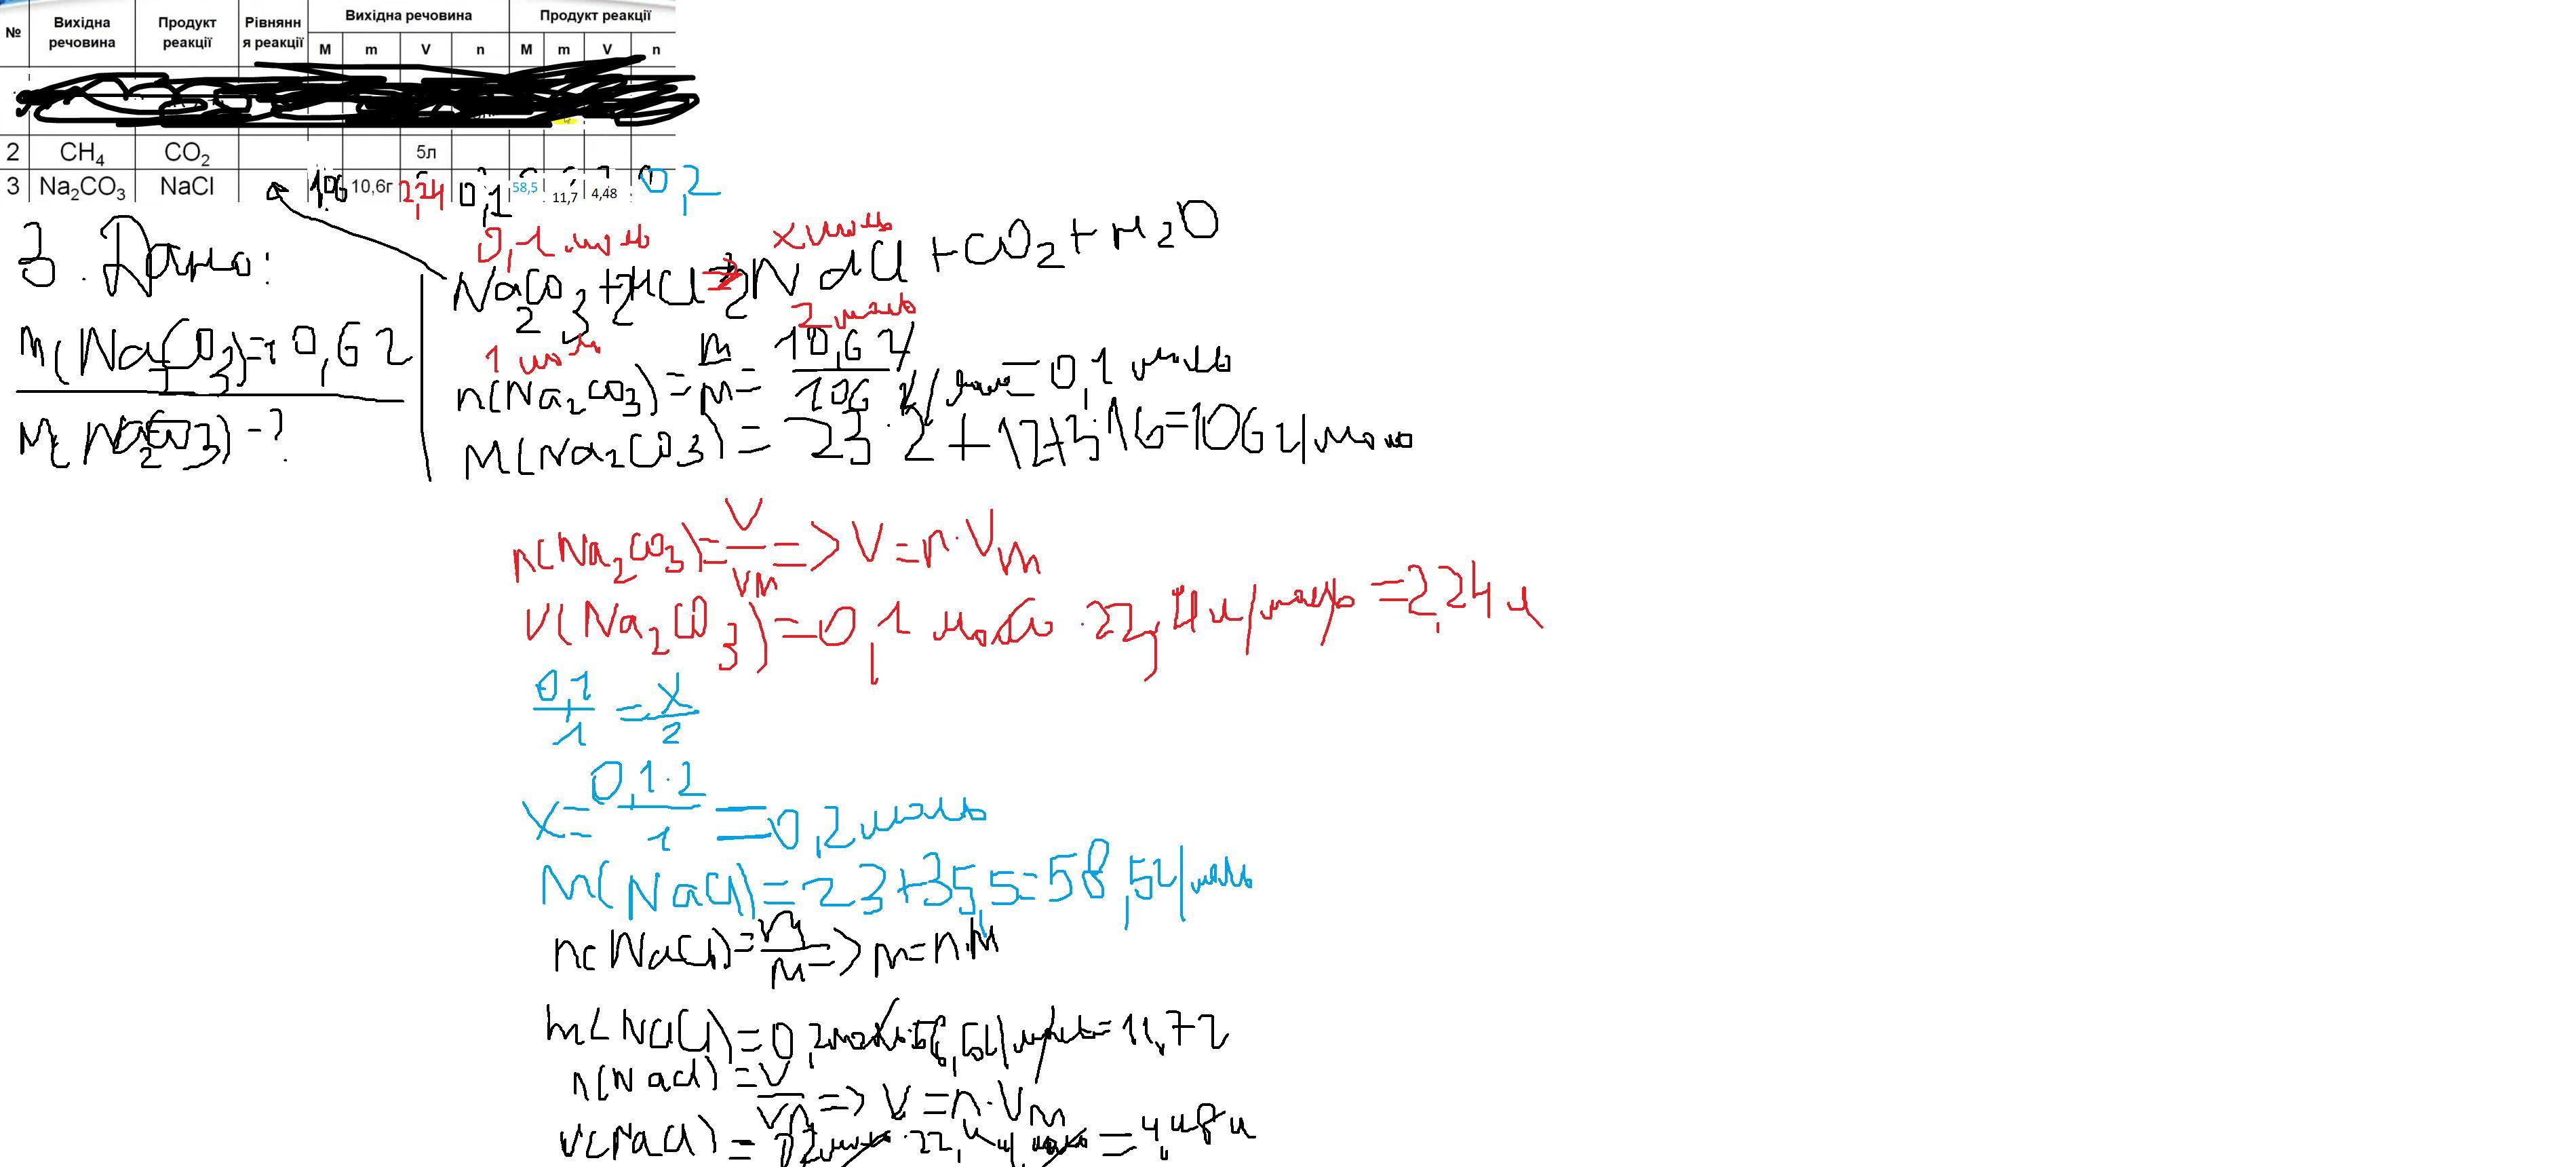 № Вихідна речовина Продукт реакції Рівняння реакції Вихідна речовина Продукт реакції
M m V n M m V n
2 CH₄ CO₂ 5л
3 Na₂CO₃ NaCl 106 10,6г 2,24 0,1 58,5 11,7 4,48 0,2
3. Дано:
m(Na₂CO₃)=10,6г
M(Na₂CO₃)-?
0,1 моль x моль
Na₂CO₃+2HCl→2NaCl+CO₂+H₂O
1 моль 2 моль
n(Na₂CO₃)=m/M=10,6г/106 г/моль=0,1 моль
M(Na₂CO₃)=23·2+12+3·16=106г/моль
n(Na₂CO₃)=V/Vm=>V=n·Vm
V(Na₂CO₃)=0,1 моль·22,4л/моль=2,24л
0,1/1=x/2
x=0,1·2/1=0,2моль
M(NaCl)=23+35,5=58,5г/моль
n(NaCl)=m/M=>m=n·M
m(NaCl)=0,2моль·58,5г/моль=11,7г
n(NaCl)=V/Vm=>V=n·Vm
V(NaCl)=0,2моль·22,4л/моль=4,48л